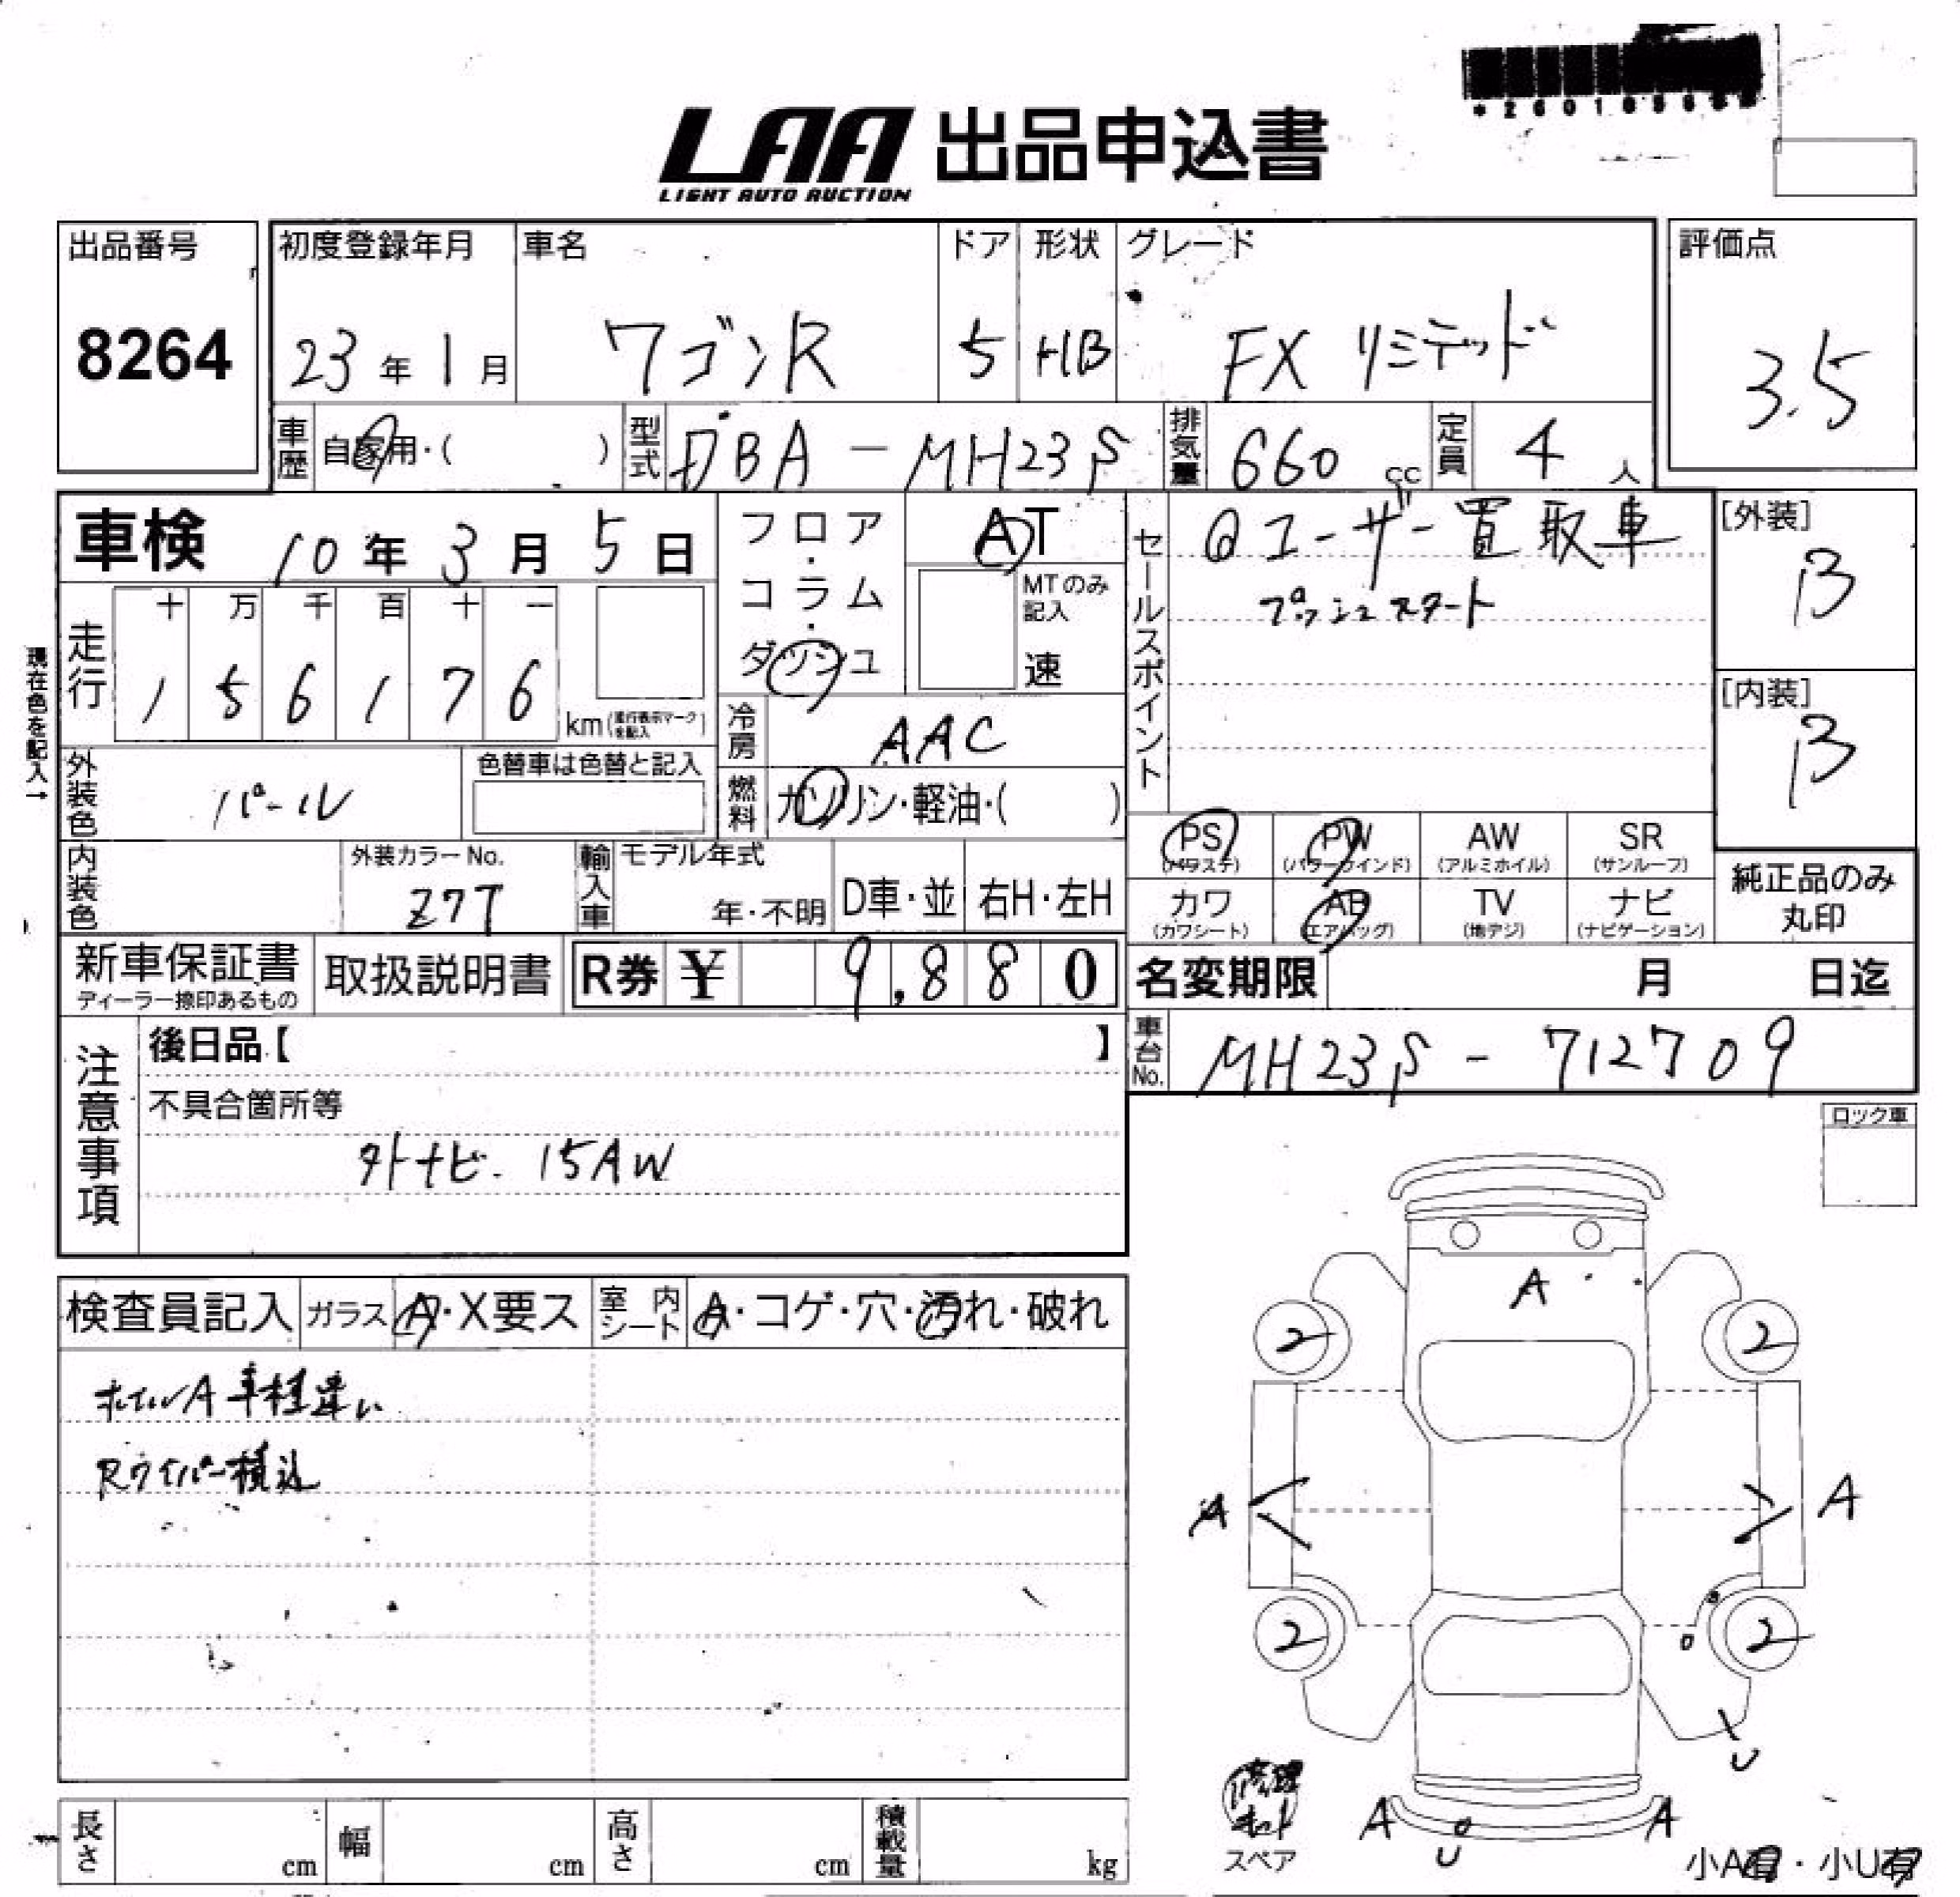 LAA 出品申込書
LIGHT AUTO AUCTION
出品番号
8264
初度登録年月
23年1月
車名
ワゴンR
ドア
5
形状
HB
グレード
FX リミテッド
評価点
3.5
車歴
自家用・( )
型式
DBA-MH23S
排気量
660cc
定員
4人
車検 10年3月5日
フロア・コラム・ダッシュ
AT
MTのみ記入
速
セールスポイント
@ユーザー買取車
プッシュスタート
[外装]
B
[内装]
B
現在色を記入→
走行
十 万 千 百 十 一
1 5 6 1 7 6
km(走行表示マークを記入)
冷房
AAC
外装色
パール
色替車は色替と記入
燃料
ガソリン・軽油・( )
PS
(パワステ)
PW
(パワーウインド)
AW
(アルミホイル)
SR
(サンルーフ)
カワ
(カワシート)
AB
(エアバッグ)
TV
(地デジ)
ナビ
(ナビゲーション)
純正品のみ
丸印
内装色
外装カラーNo.
Z7T
輸入車
モデル年式
年・不明
D車・並
右H・左H
新車保証書
ディーラー捺印あるもの
取扱説明書
R券 ¥ 9,880
名変期限 月 日迄
車台No.
MH23S-712709
注意事項
後日品【 】
不具合箇所等
外ナビ. 15AW
ロック車
検査員記入
ガラス
A・X要ス
室内シート
A・コゲ・穴・汚れ・破れ
ホイルA 車種違い
Rワイパー積込
A
2 2
A A
2 2
U
修理キット
スペア
A A
U
小A有・小U有
長さ cm
幅 cm
高さ cm
積載量 kg